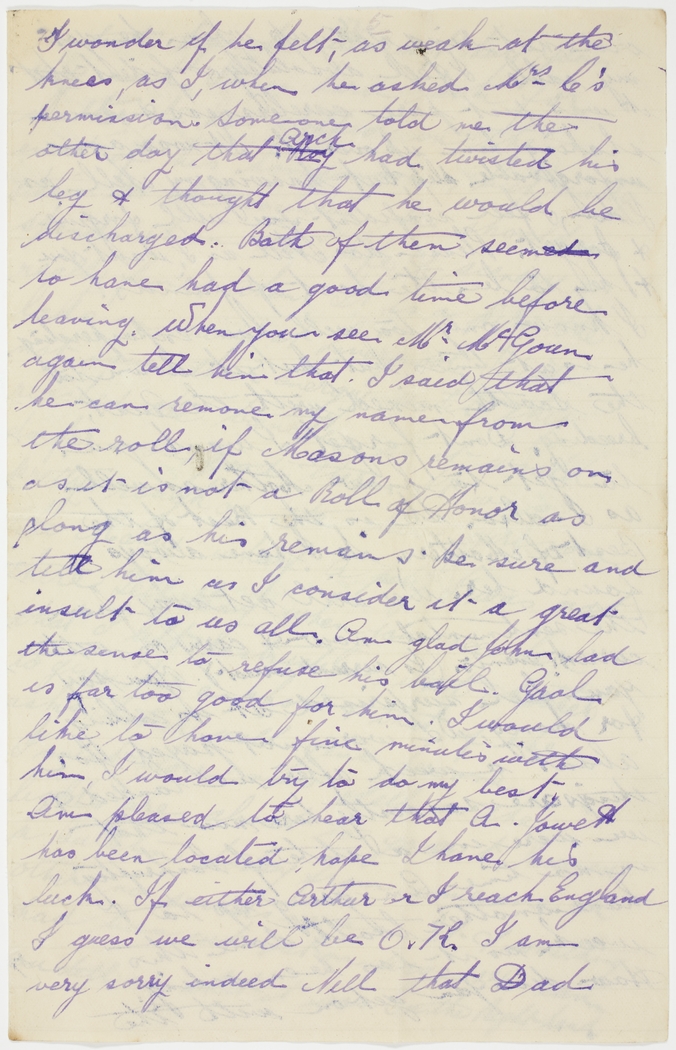 I wonder if he felt, as weak at the
knees, as I, when he asked Mrs C's
permission. Someone told me the
other day that Arch Roy had twisted his
leg & thought that he would be
discharged. Both of them seemed
to have had a good time before
leaving. When you see Mr McGoun
again tell him that. I said that
he can remove my name from
the roll, if Masons remains on
as it is not a Roll of Honor as
long as his remains. Be sure and
tell him as I consider it a great
insult to us all. Am glad John had
the sense to refuse his bail. Gaol
is far too good for him. I would
like to have five minutes with
him I would try to do my best.
Am pleased to hear that A. Jowett
has been located, hope I have his
luck. If either Arthur or I reach England
I guess we will be O.K. I am
very sorry indeed Nell that Dad